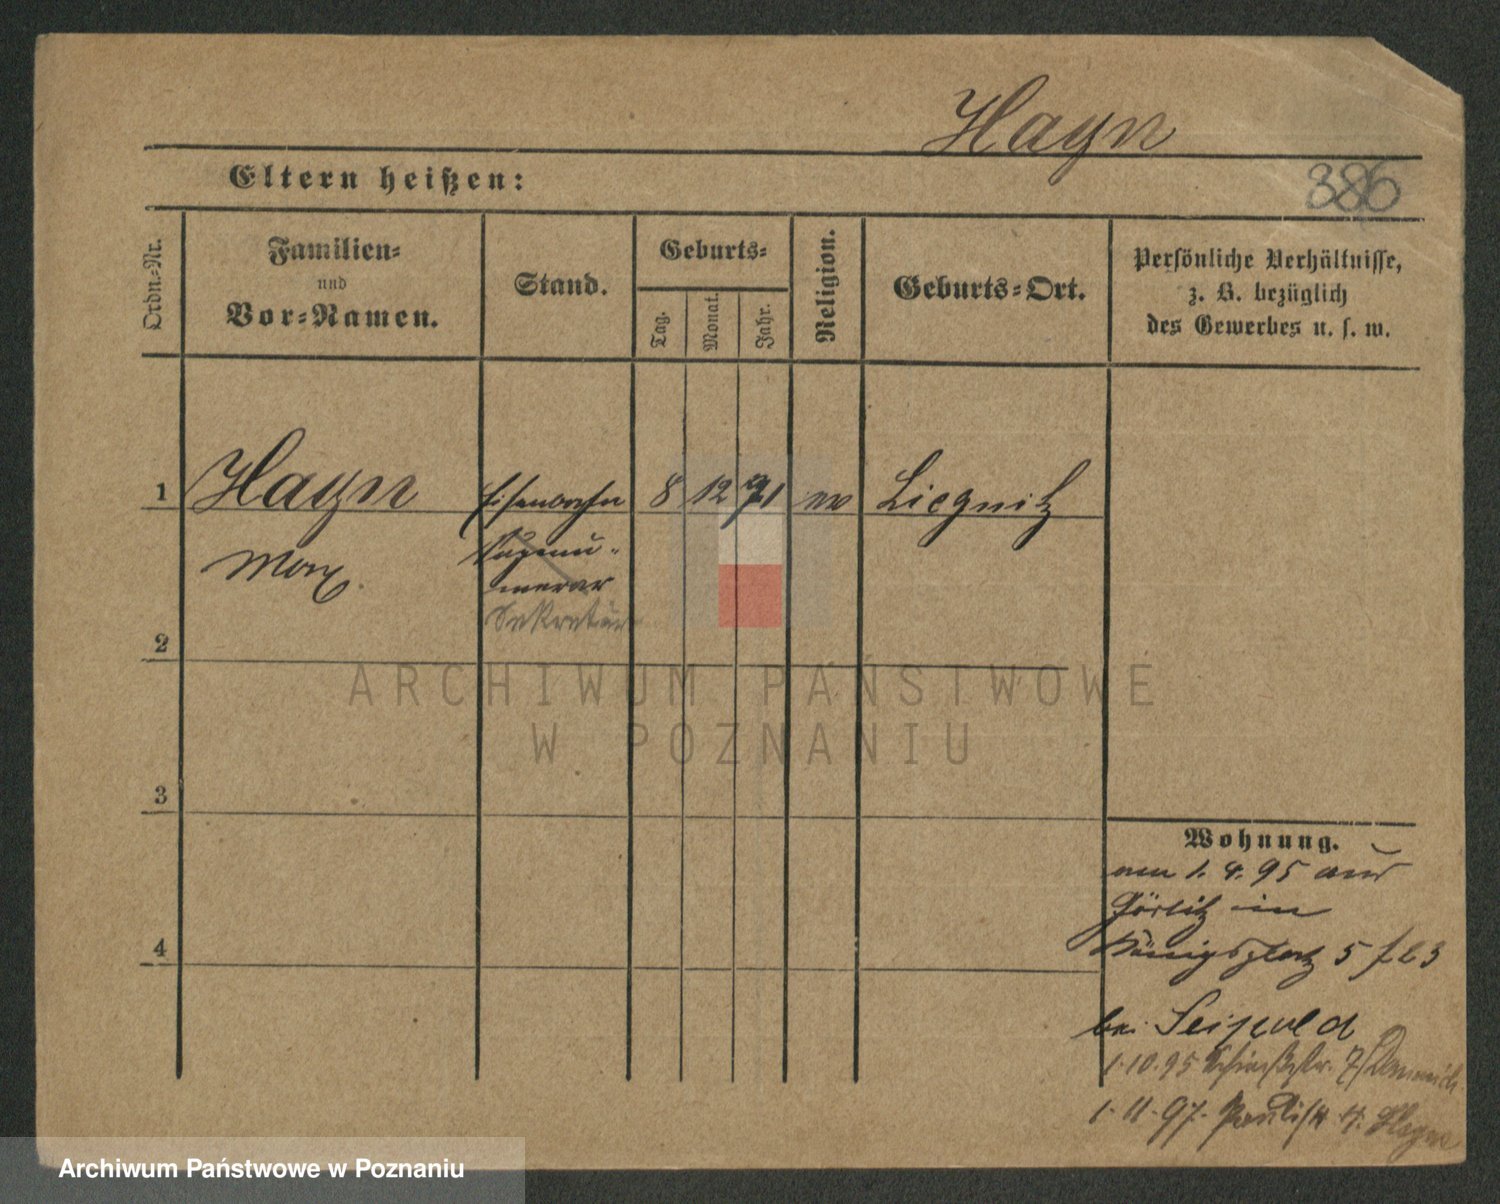 Hayn
Eltern heißen:
386
Ordn.-Nr.
Familien-
und
Vor-Namen.
Stand.
Geburts-
Tag.
Monat.
Jahr.
Religion.
Geburts-Ort.
Persönliche Verhältnisse,
z. B. bezüglich
des Gewerbes u. s. w.
1
Hayn
Eisenbahn
8
12
71
ev
Liegnitz
Max.
Supernu-
merar
Sekretär
2
3
4
ARCHIWUM PAŃSTWOWE
W POZNANIU
Wohnung.
am 1. 4. 95 aus
Görlitz in
Königsplatz 5
bei Seipold
1.10.95
1.11.97.
Archiwum Państwowe w Poznaniu